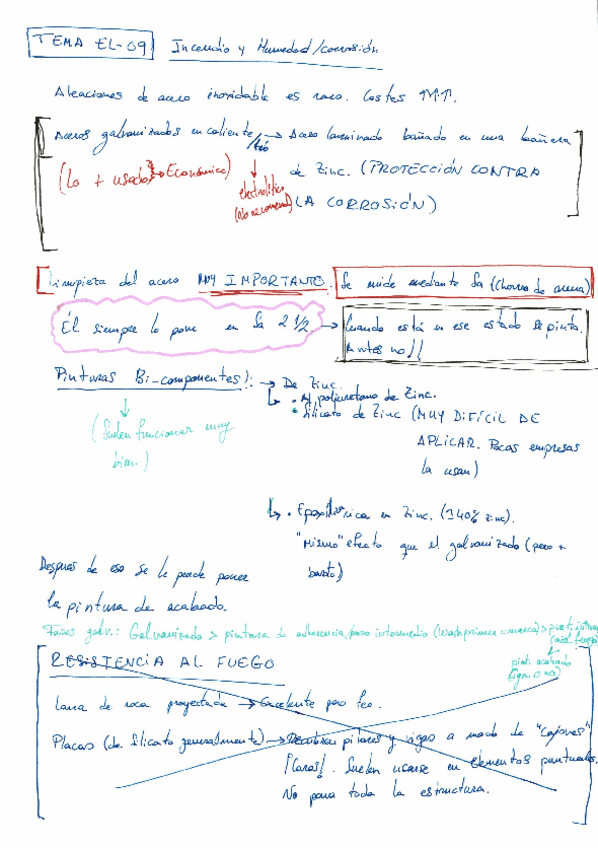 TEMA EL-09 Incendio y Humedad/corrosión
Aleaciones de acero inoxidable es raro. Costes ↑↑↑.
Aceros galvanizados en caliente/frío → Acero laminado bañado en una bañera
de Zinc. (PROTECCIÓN CONTRA
LA CORROSIÓN)
(Lo + usado → Económico)
electrolítico
(No recomend)
Limpieza del acero MUY IMPORTANTE. Se mide mediante Sa (Chorro de arena)
Él siempre lo pone en Sa 2 1/2. → Cuando está en ese estado se pinta.
Antes no!!
Pinturas Bi-componentes!: → De Zinc.
(Suelen funcionar muy
bien.)
• Al poliuretano de Zinc.
• Silicato de Zinc (MUY DIFÍCIL DE
APLICAR. Pocas empresas
la usan)
• Epoxi rica en Zinc. (≥40% zinc).
"Mismo" efecto que el galvanizado (pero +
barato)
Despues de eso se le puede poner
la pintura de acabado.
Fases galv.: Galvanizado > pintura de adherencia/paso intermedio (Washprimer o mareca) >
pint. acabado
(ign. o no)
RESISTENCIA AL FUEGO
Lana de roca proyectada → Excelente pero feo.
Placas (de Silicato generalmente) → Recubren pilares y vigas a modo de "cajones"
¡Caras!. Suelen usarse en elementos puntuales.
No para toda la estructura.